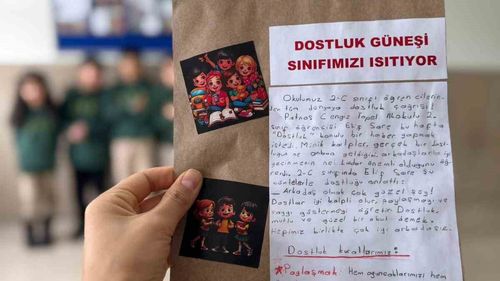 DOSTLUK GÜNEŞİ
SINIFIMIZI ISITIYOR
Okulumuz 2-C sınıfı öğrencilerin-
den tüm dünyaya dostluk çağrısı!
Patnos Cengiz Topel İlkokulu 2-
sınıf öğrencisi Elif Sare bu hafta
"Dostluk" konulu bir haber yapmak
istedi. Minik kalpler, gerçek bir dost-
luğun ve
ne kadar önemli olduğunu öğ
rendi. 2-C sınıfında Elif Sare şu
cümlelerle dostluğu anlattı:
— Arkadaş olmak çok güzel şey!
Dostlar iyi kalpli olur, paylaşmayı ve
saygı göstermeyi öğretir. Dostluk,
mutlu ve güzel bir okul demek.
Hepimiz birlikte çok iyi arkadaşız.
Dostluk kurallarımız:
*Paylaşmak: Hem oyuncaklarımızı hem